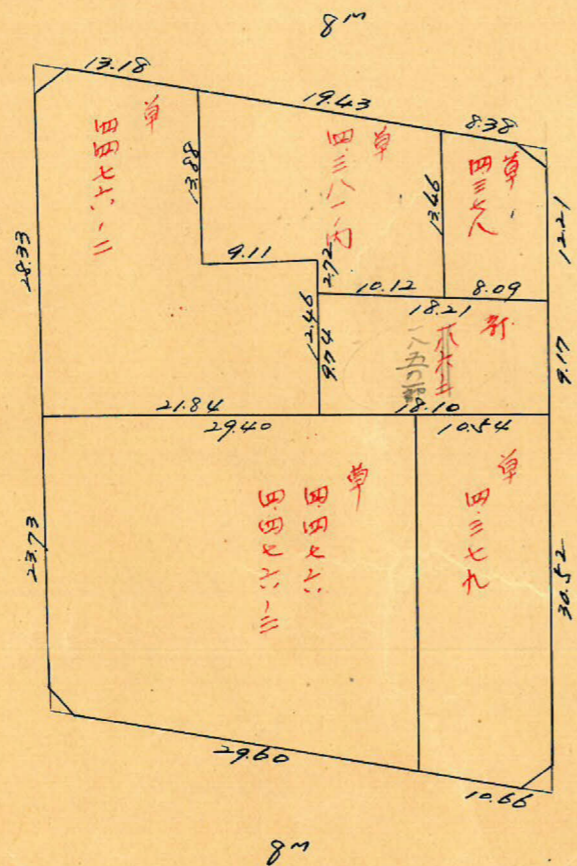 8m
13.18
19.43
8.38
草
四四七六ノ二
13.88
草
四三八一ノ内
13.46
草
四三七八
12.21
28.33
9.11
2.72
10.12
8.09
18.21
12.46
9.74
9.17
21.84
18.10
29.40
10.54
草
四四七六
四四七六ノ三
草
四三七九
23.73
30.52
29.60
10.66
8m